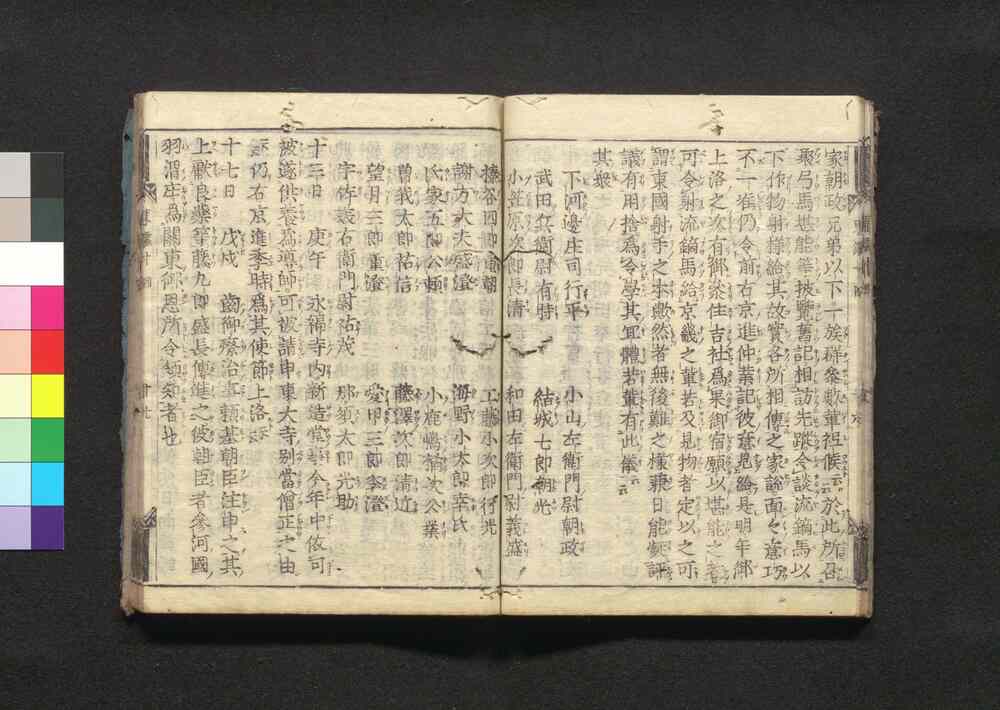 家朝政兄弟以下一族群參數輩祗候云云於此所召
聚弓馬堪能等披覽舊記相訪先蹤令談流鏑馬以
下作物射樣給其故實各所相傳之家說面々意巧
不一准仍令前右京進仲業記彼意見給是明年御
上洛之次有御參住吉社爲果御宿願以堪能之者
可令射流鏑馬給京畿之輩若及見物者定以之可
謂東國射手之本歟然者無後難之樣兼日能契評
議有用捨為令學其冝體若輩有此儀云云
其衆
下河邊庄司行平　小山左衛門尉朝政
武田兵衛尉有時　結城七郎朝光
小笠原次郎長清　和田左衛門尉義盛
榛谷四郎重朝　工藤小次郎行光
諏方大夫盛澄　海野小太郎幸氏
氏家五郎公頼　小鹿嶋橘次公業
曽我太郎祐信　藤澤次郎清近
望月三郎重澄　愛甲三郎季澄
宇佐美右衛門尉祐茂　那須太郎光助
十三日　庚午　永福寺内新造堂等今年中依可
被遂供養爲導師可被請申東大寺別當僧正之由
仍右京進季時爲其使節上洛
十七日　戊戌　齒御療治事頼基朝臣注申之其
上獻良藥等藤九郎盛長傳進之彼朝臣者參河國
羽渭庄爲關東御恩所令領知者也